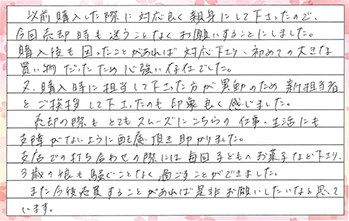 以前購入した際に対応良く親身にして下さったので、
今回売却時も迷うことなくお願いすることにしました。
購入後も困ったことがあれば対応下さり、初めての大きな
買い物だったため心強い存在でした。
又、購入時に担当して下さった方が異動のため新担当者
とご挨拶して下さったのも印象良く感じました。
売却の際もとてもスムーズにこちらの仕事・生活にも
支障がないように配慮頂き助かりました。
支店での打ち合わせの際には毎回子どものお菓子など下さり、
3歳の娘も騒ぐことなく過ごすことができました。
また今後売買することがあれば是非お願いしたいなと思って
います。